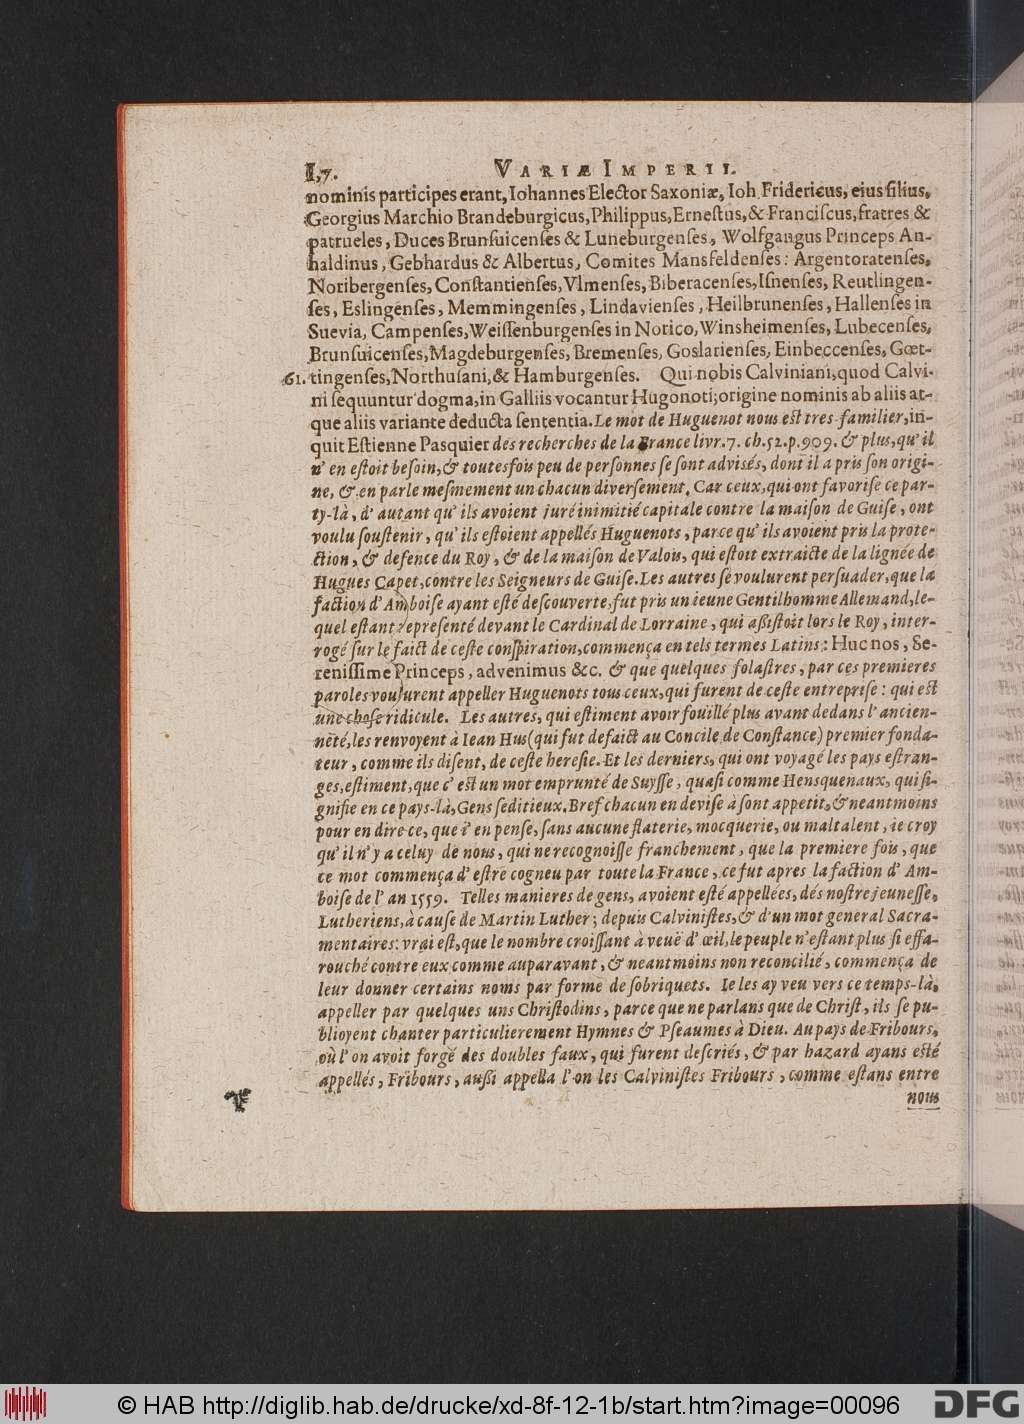 I,7. VARIÆ IMPERII.
nominis participes erant, Iohannes Elector Saxoniæ, Ioh. Fridericus, eius filius,
Georgius Marchio Brandeburgicus, Philippus, Erneſtus, & Franciſcus, fratres &
patrueles, Duces Brunſuicenſes & Luneburgenſes, Wolfgangus Princeps An-
haldinus, Gebhardus & Albertus, Comites Mansfeldenſes: Argentoratenſes,
Noribergenſes, Conſtantienſes, Vlmenſes, Biberacenſes, Iſnenſes, Reutlingen-
ſes, Eslingenſes, Memmingenſes, Lindavienſes, Heilbrunenſes, Hallenſes in
Suevia, Campenſes, Weiſſenburgenſes in Norico, Winsheimenſes, Lubecenſes,
Brunſuicenſes, Magdeburgenſes, Bremenſes, Goslarienſes, Einbeccenſes, Gœt-
61. tingenſes, Northuſani, & Hamburgenſes. Qui nobis Calviniani, quod Calvi-
ni ſequuntur dogma, in Galliis vocantur Hugonoti; origine nominis ab aliis at-
que aliis variante deducta ſententia. Le mot de Huguenot nous eſt tres-familier, in-
quit Eſtienne Pasquier des recherches de la France livr. 7. ch. 52. p. 909. & plus, qu'il
n'en eſtoit beſoin, & toutesfois peu de perſonnes ſe ſont advisés, dont il a pris ſon origi-
ne, & en parle meſmement un chacun diverſement. Car ceux, qui ont favoriſe ce par-
ty-là, d'autant qu'ils avoient juré inimitié capitale contre la maiſon de Guiſe, ont
voulu ſouſtenir, qu'ils eſtoient appellés Huguenots, parce qu'ils avoient pris la prote-
ction, & defence du Roy, & de la maiſon de Valois, qui eſtoit extraicte de la lignée de
Hugues Capet, contre les Seigneurs de Guiſe. Les autres ſe voulurent perſuader, que la
faction d'Amboiſe ayant eſté deſcouverte, fut pris un ieune Gentilhomme Allemand, le-
quel eſtant repreſenté devant le Cardinal de Lorraine, qui aßiſtoit lors le Roy, inter-
rogé ſur le faict de ceſte conſpiration, commença en tels termes Latins: Huc nos, Se-
reniſſime Princeps, advenimus &c. & que quelques folaſtres, par ces premieres
paroles voulurent appeller Huguenots tous ceux, qui furent de ceſte entrepriſe: qui eſt
une choſe ridicule. Les autres, qui eſtiment avoir fouïllé plus avant dedans l'ancien-
neté, les renvoyent à Iean Hus (qui fut defaict au Concile de Conſtance) premier fonda-
teur, comme ils diſent, de ceſte hereſie. Et les derniers, qui ont voyagé les pays eſtran-
ges, eſtiment, que c'eſt un mot emprunté de Suyſſe, quaſi comme Hensquenaux, qui ſi-
gnifie en ce pays-là, Gens ſeditieux. Bref chacun en deviſe à ſont appetit, & neantmoins
pour en dire ce, que i'en penſe, ſans aucune flaterie, mocquerie, ou maltalent, ie croy
qu'il n'y a celuy de nous, qui ne recognoiſſe franchement, que la premiere fois, que
ce mot commença d'eſtre cogneu par toute la France, ce fut apres la faction d'Am-
boiſe de l'an 1559. Telles manieres de gens, avoient eſté appellées, dés noſtre jeuneſſe,
Lutheriens, à cauſe de Martin Luther; depuis Calviniſtes, & d'un mot general Sacra-
mentaires: vrai eſt, que le nombre croiſſant à veuë d'œil, le peuple n'eſtant plus ſi effa-
rouché contre eux comme auparavant, & neantmoins non reconcilié, commença de
leur donner certains noms par forme de ſobriquets. Ie les ay veu vers ce temps-là,
appeller par quelques uns Chriſtodins, parce que ne parlans que de Chriſt, ils ſe pu-
blioyent chanter particulierement Hymnes & Pſeaumes à Dieu. Au pays de Fribours,
où l'on avoit forgé des doubles faux, qui furent deſcriés, & par hazard ayans eſté
appellés, Fribours, außi appella l'on les Calviniſtes Fribours, comme eſtans entre
nous
© HAB http://diglib.hab.de/drucke/xd-8f-12-1b/start.htm?image=00096
DFG